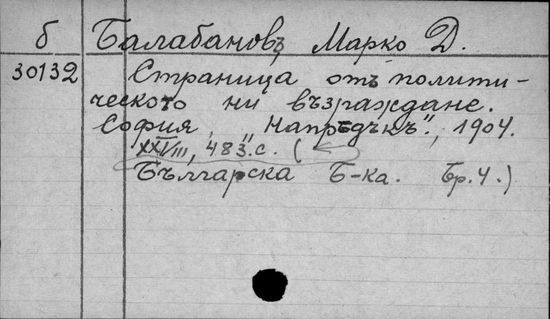 б Балабановъ, Марко Д.
30132 Страница отъ полити-
ческото ни възраждане.
София, "Напрѣдъкъ", 1904.
XXVIII, 483 с. (
Българска Б-ка. Бр. 4.)